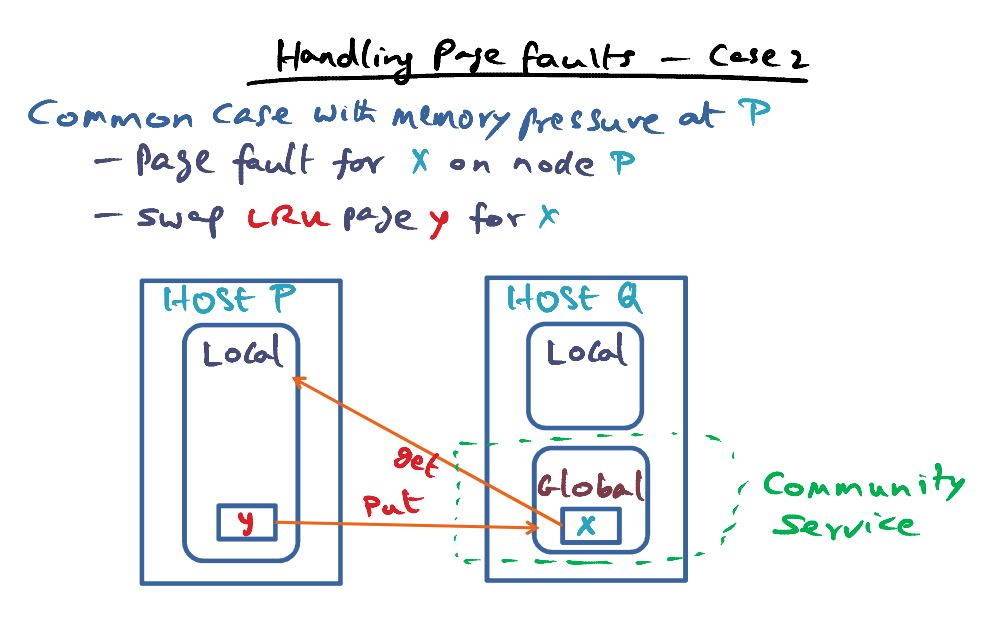 Handling Page faults - Case 2
Common case with memory pressure at P
- Page fault for X on node P
- swap LRU page y for X
Host P
Local
y
Host Q
Local
Global
X
get
Put
Community
Service